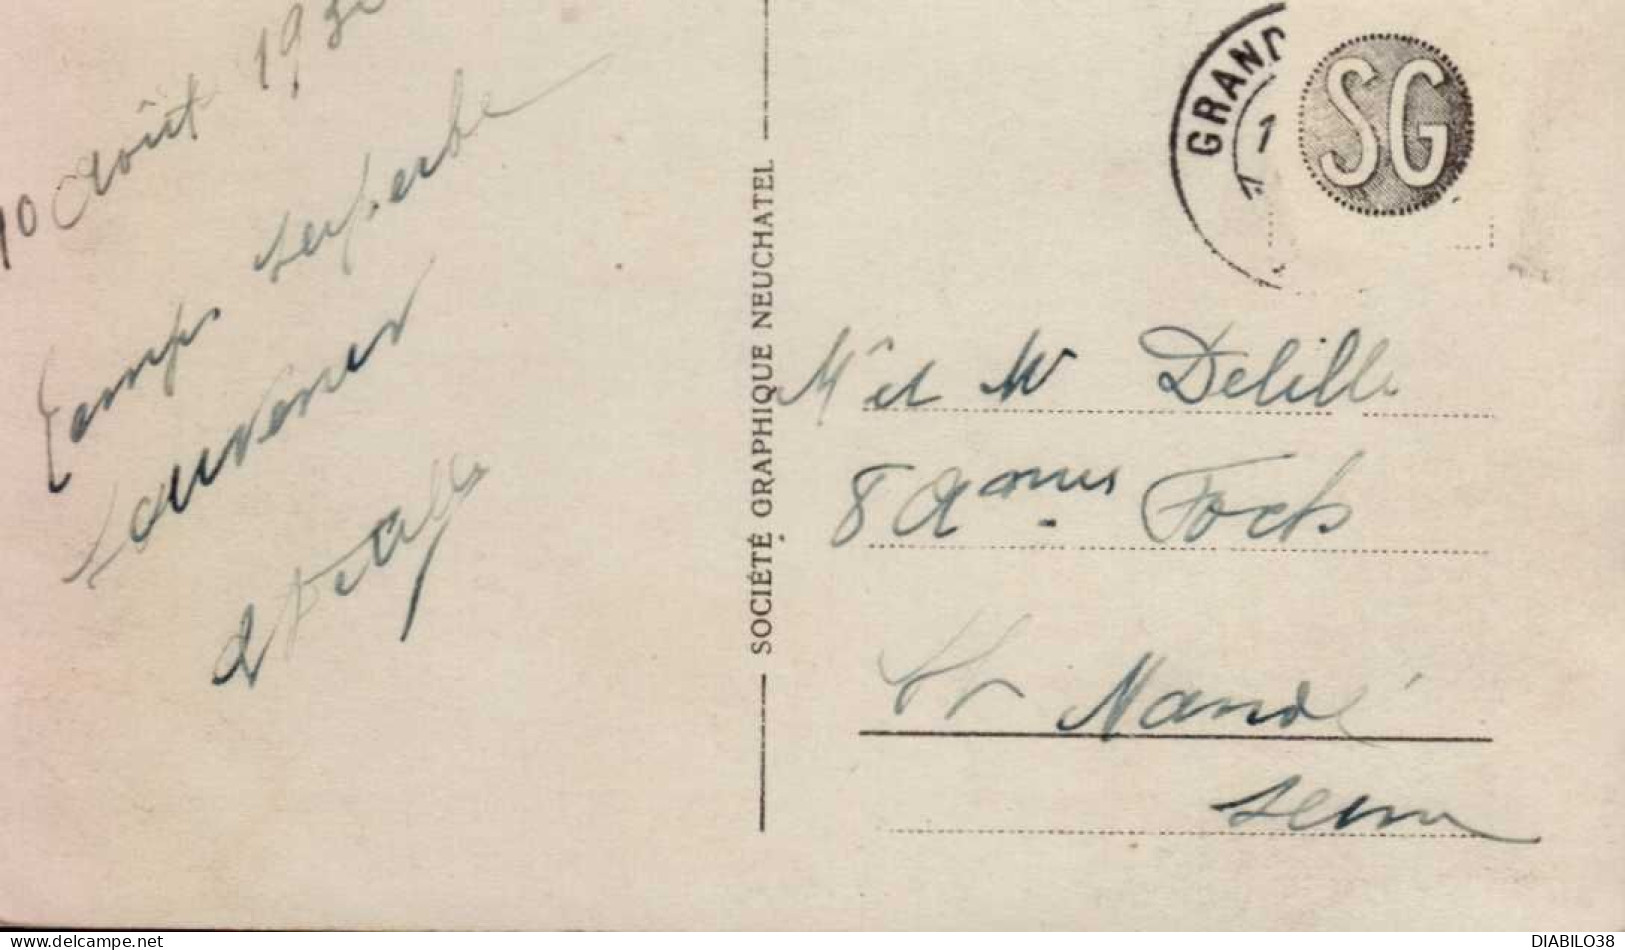 10 Août 193
temps superbe
souvenir
SOCIÉTÉ GRAPHIQUE NEUCHATEL
GRAND
1
SG
Mr et Me Delille
8 Foch
St Mandé
Seine
www.delcampe.net
DIABILO38